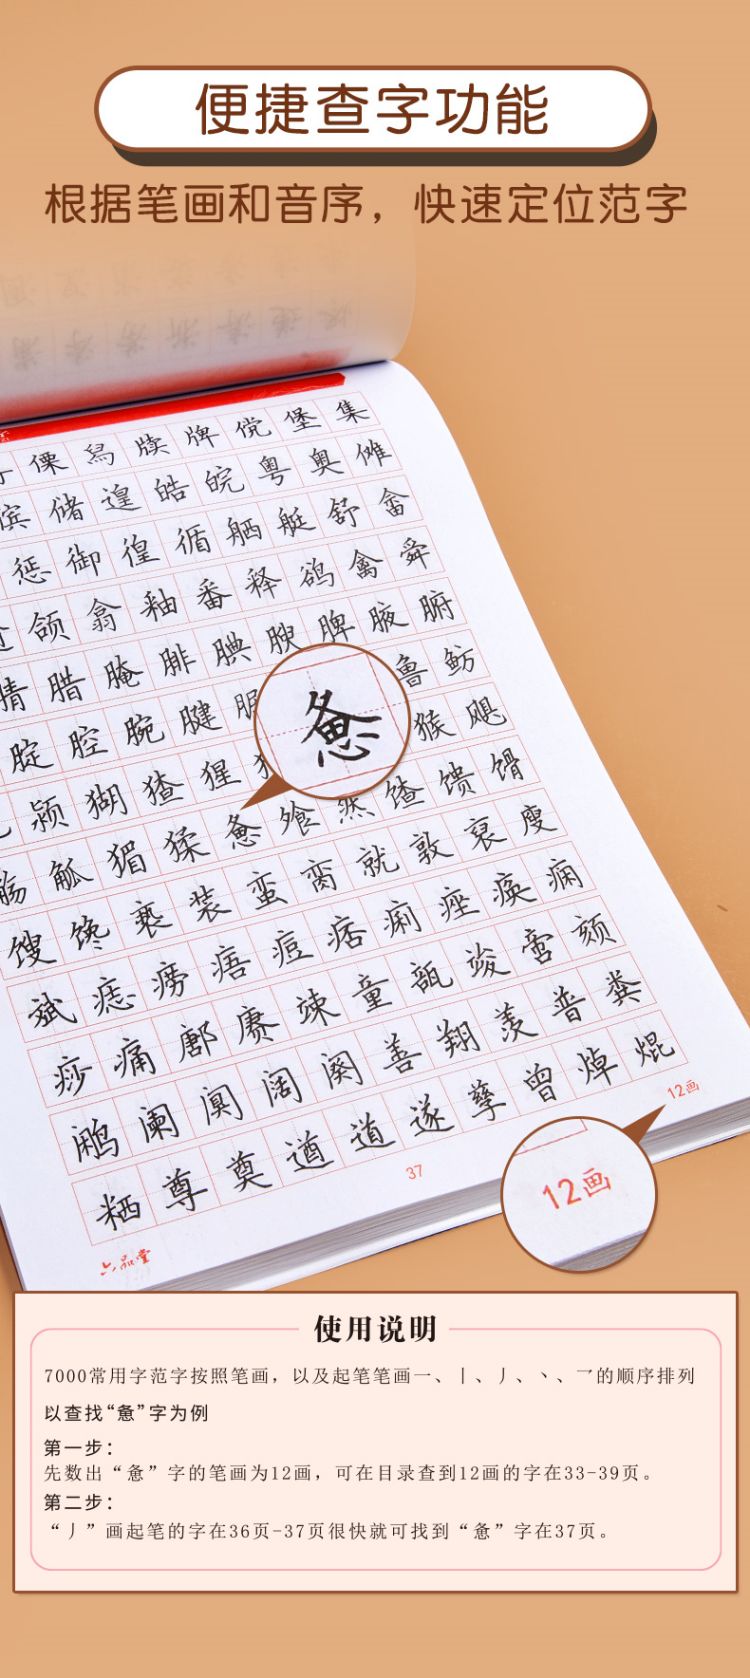 便捷查字功能
根据笔画和音序，快速定位范字
傈舄牍牌傥堡集
傧储遑皓皖粤奥傩
惩御徨循舾艇舒畲
颌翕釉番释鹆禽舜
腈腊腌腓腆腴脾腋腑
腚腔腕腱鲁鲂
惫
颍猢猹猩猴飓
觞觚猸猱惫飧然馇馈馉
馊馋亵装蛮脔就敦裒廋
斌痣痨痦痘痞痢痤痪痫
痧痛鄌赓竦童瓿竣啻颏
鹇阑阒阔阕善翔羡普粪
粞尊奠遒道遂孳曾焯焜
37
12画
12画
六品堂
使用说明
7000常用字范字按照笔画，以及起笔笔画一、丨、丿、丶、乛的顺序排列
以查找“惫”字为例
第一步：
先数出“惫”字的笔画为12画，可在目录查到12画的字在33-39页。
第二步：
“丿”画起笔的字在36页-37页很快就可找到“惫”字在37页。